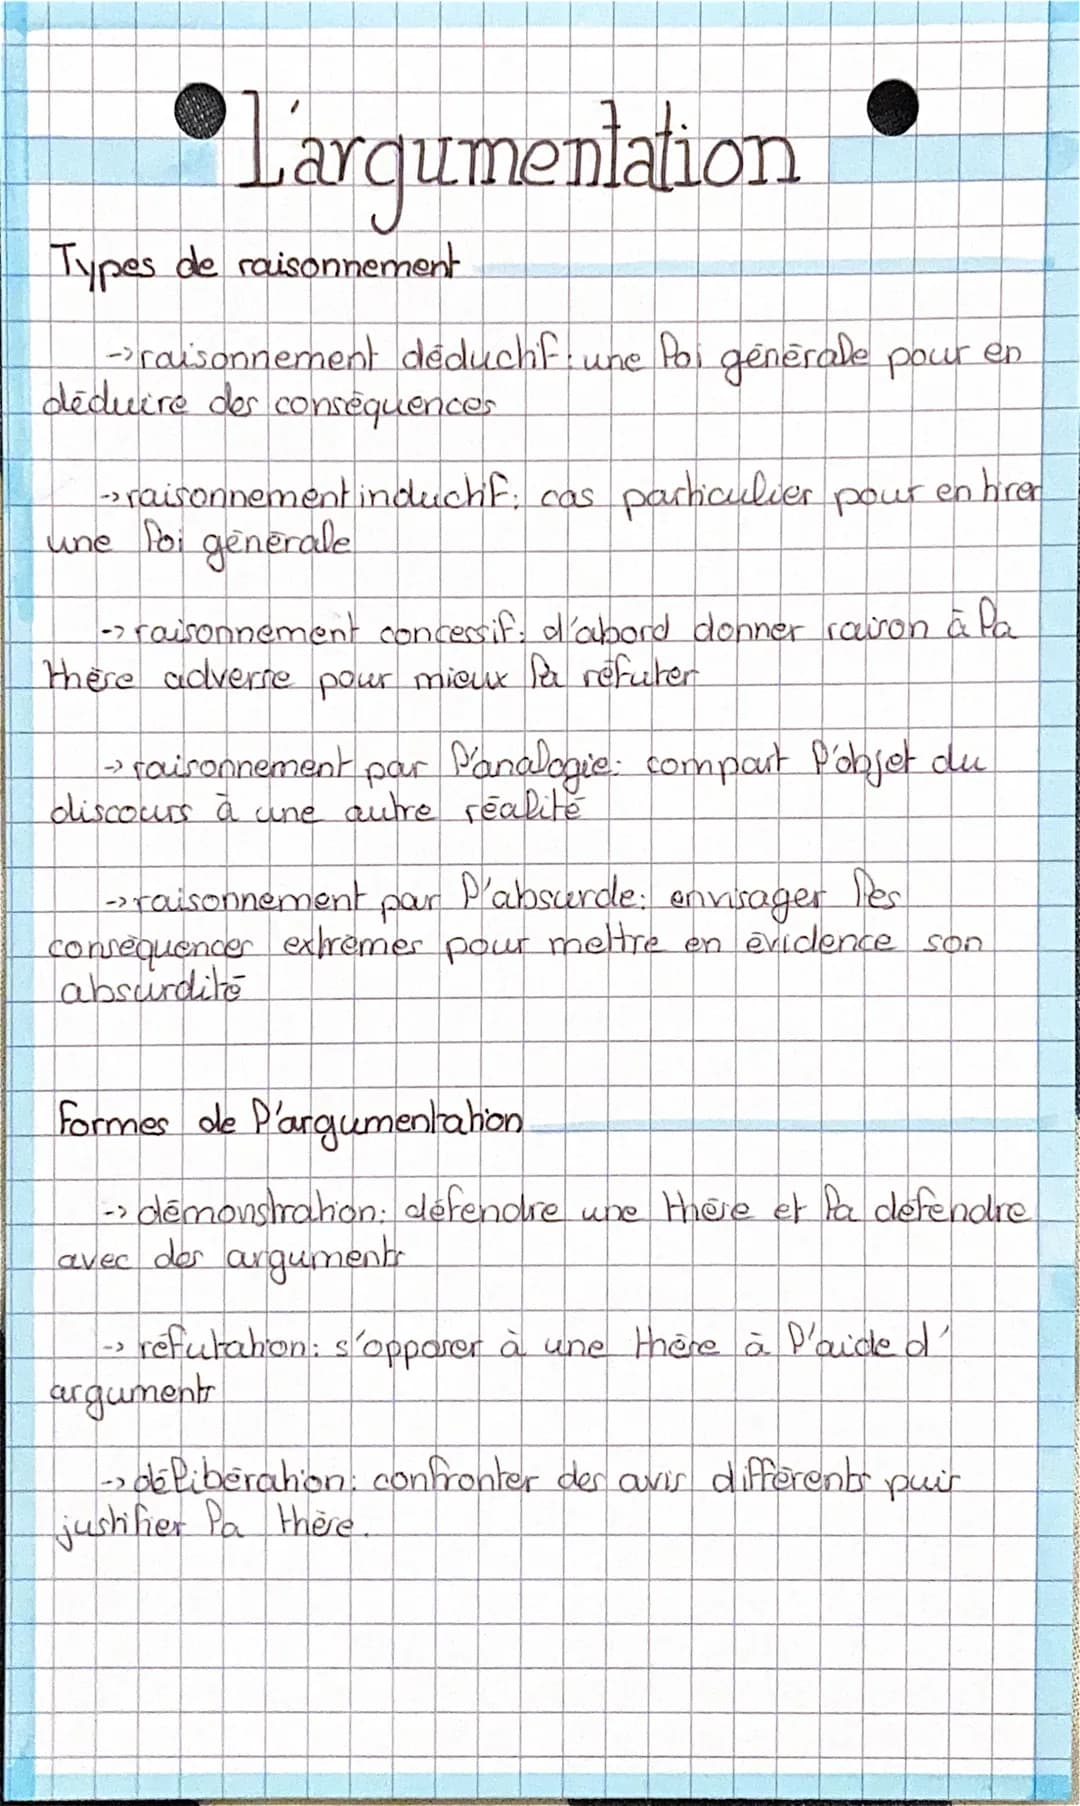 L'argumentation
Types de raisonnement
-> raisonnement déductif: une loi générale pour en
déduire des conséquences
-> raisonnement inductif: cas particulier pour en tirer
une loi générale
-> raisonnement concessif: d'abord donner raison à la
thèse adverse pour mieux la réfuter
-> raisonnement par l'analogie: compart l'objet du
discours à une autre réalité
-> raisonnement par l'absurde: envisager les
conséquences extrêmes pour mettre en évidence son
absurdité
Formes de l'argumentation
-> démonstration: défendre une thèse et la défendre
avec des arguments
-> réfutation: s'opposer à une thèse à l'aide d'
arguments
-> délibération: confronter des avis différents puis
justifier la thèse.